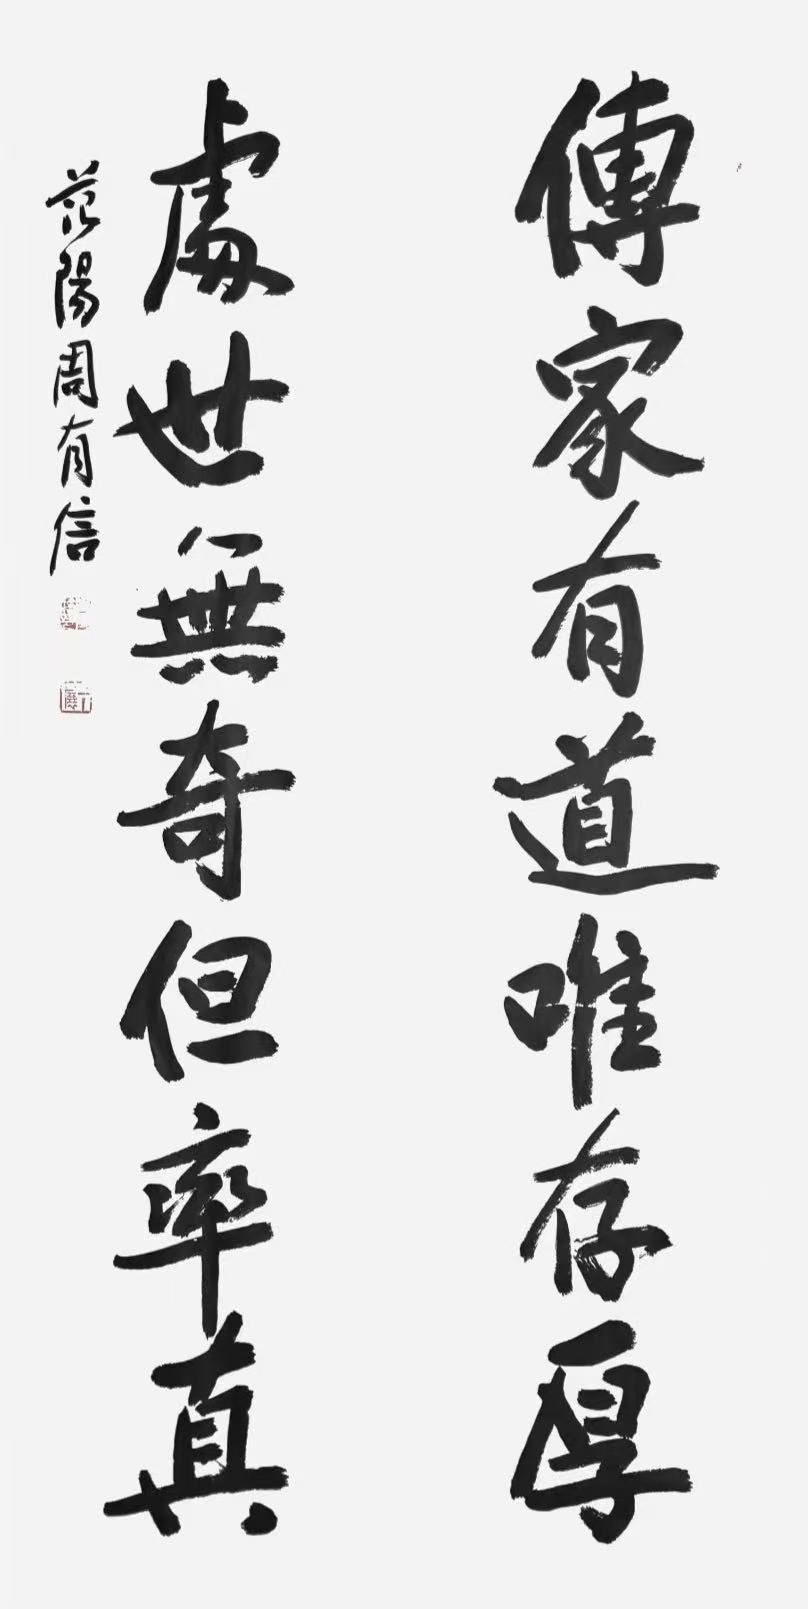 傳家有道唯存厚
處世無奇但率真
范陽周有信